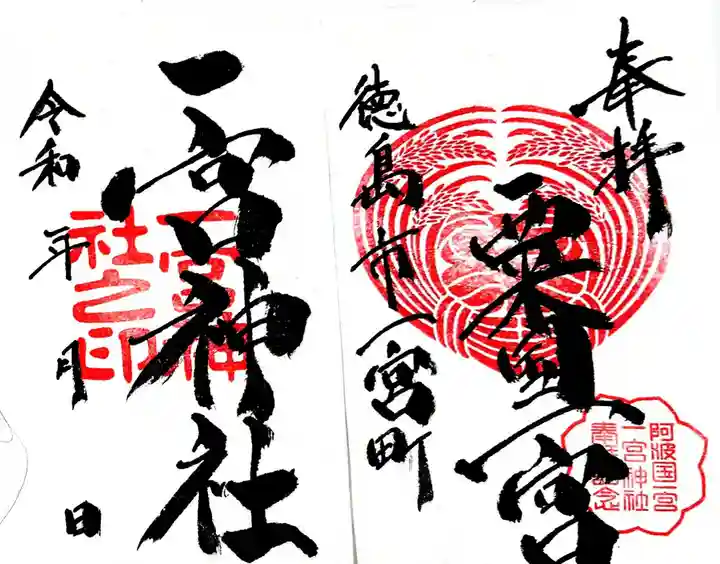 奉拝
粟国一宮
徳島市一宮町
阿波国一宮
一宮神社
奉拝記念
一宮神社
一宮神
社之印
令和 年 月 日